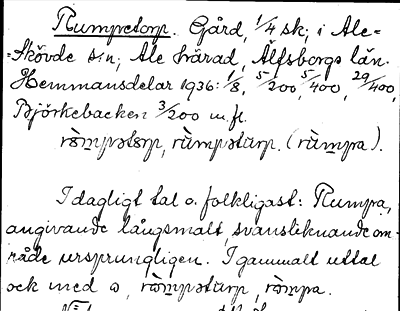 Rumpetorp. Gård, 1/4 sk; i Ale-
-Skövde s:n; Ale härad, Älfsborgs län.
Hemmansdelar 1936: 1/8, 5/200, 5/400, 29/400,
Björkebacken 3/200 m.fl.
I dagligt tal o. folkligast: Rumpa,
angivande långsmalt, svansliknande om-
råde ursprungligen. I gammalt uttal
ock med